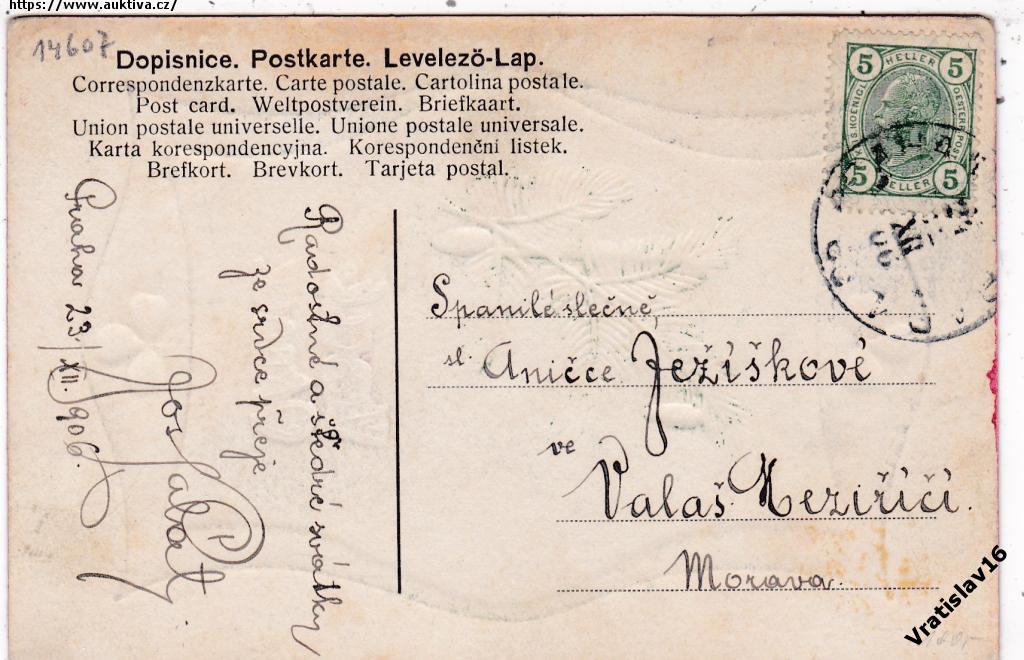 https://www.auktiva.cz/
14607
Dopisnice. Postkarte. Levelező-Lap.
Correspondenzkarte. Carte postale. Cartolina postale.
Post card. Weltpostverein. Briefkaart.
Union postale universelle. Unione postale universale.
Karta korespondencyjna. Korespondenční listek.
Brefkort. Brevkort. Tarjeta postal.
5 HELLER 5
5 HELLER 5
Praha 23/XII. 906.
Radostné a štědré svátky
ze srdce přeje
Jos
Spanilé slečně,
sl. Aničce Ježíškové
ve
Valaš. Meziříčí.
Morava.
Vratislav16